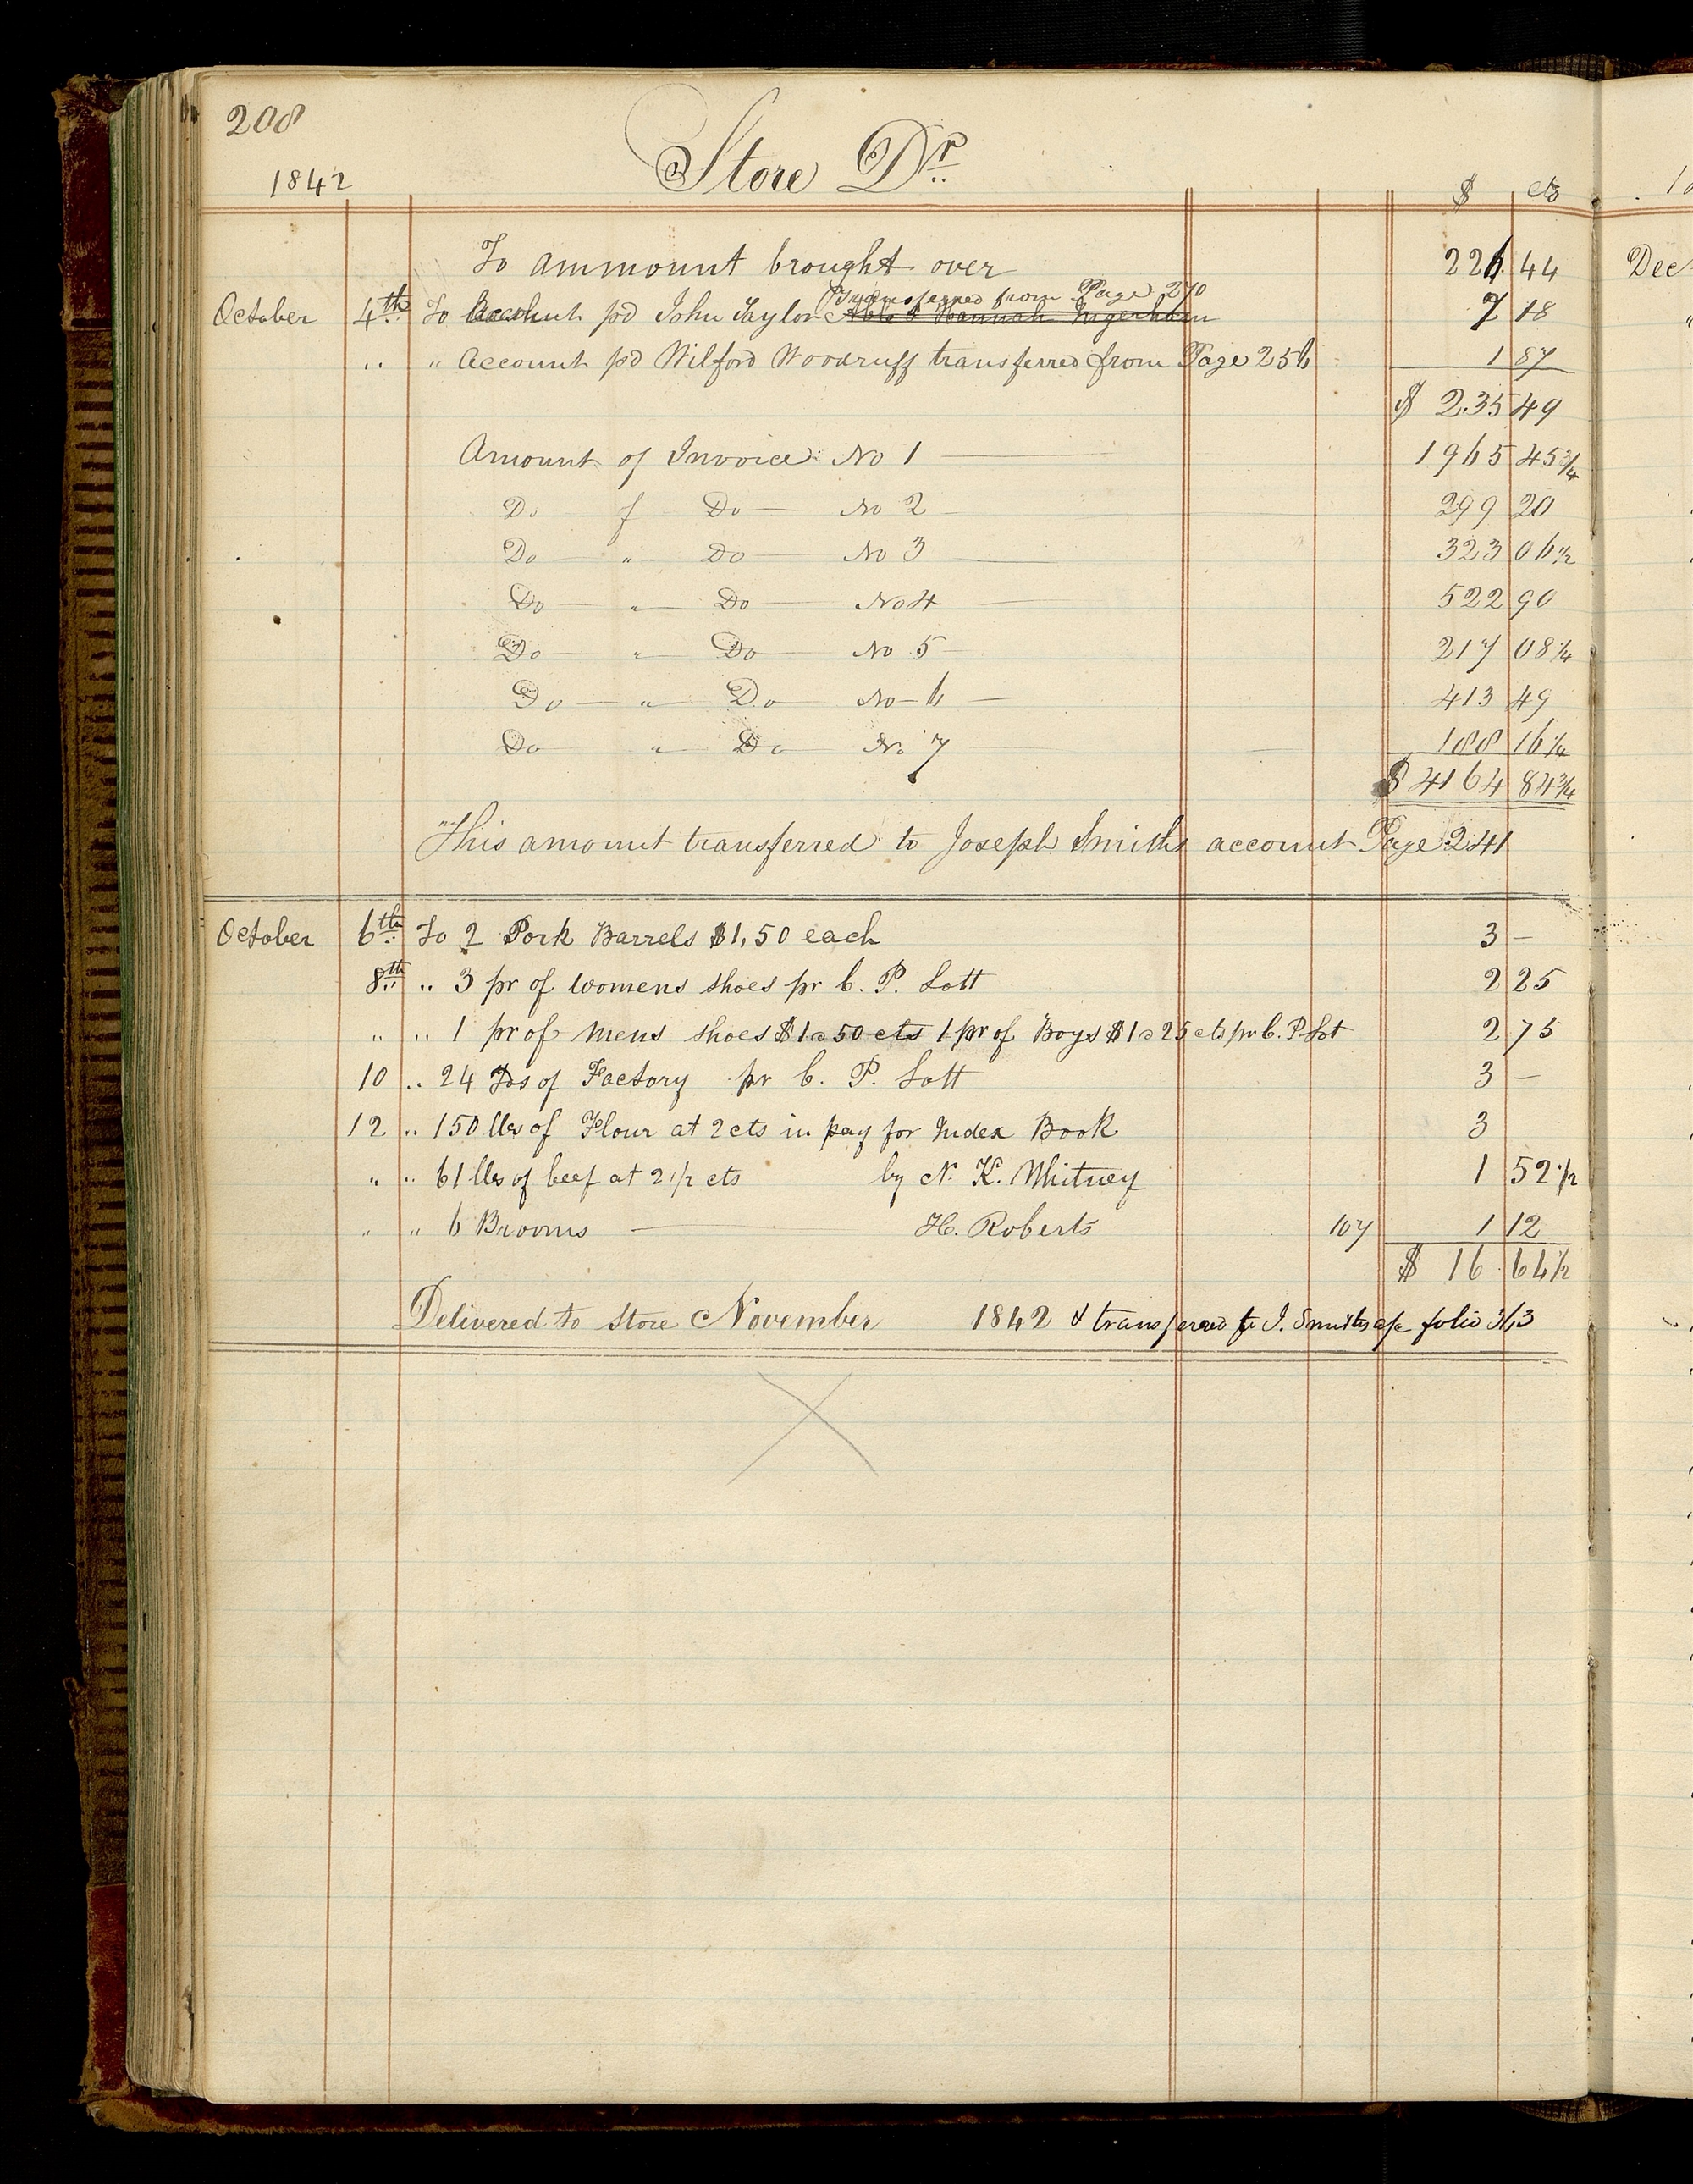 208
Store Dr.
1842 $ cts
To ammount brought over 226 44
Transferred from Page 270
October 4th To Account pd John Taylor Able & Hannah 7 18
.. " Account pd Wilford Woodruff transferred from Page 256 1 87
$ 2.35 49
Amount of Invoice No 1 1965 45 3/4
Do of Do No 2 299 20
Do " Do No 3 323 06 1/2
Do " Do No 4 522 90
Do " Do No 5 217 08 1/4
Do " Do No 6 413 49
Do " Do No 7 188 16 1/4
$ 4164 84 3/4
This amount transferred to Joseph Smiths account Page 241
October 6th To 2 Pork Barrels $1,50 each 3 –
8th " 3 pr of womens shoes pr C. P. Lott 2 25
" " 1 pr of mens shoes $1 50 cts 1 pr of Boys $1 25 cts pr C. P Lot 2 75
10 " 24 of Factory pr C. P. Lott 3 –
12 " 150 lbs of Flour at 2 cts in pay for Index Book 3
" " 61 lbs of beef at 2 1/2 cts by N. K. Whitney 1 52 1/2
" " 6 Brooms H. Roberts 107 1 12
$ 16 64 1/2
Delivered to Store November 1842 & transferred to J. Smiths a/c folio 363
Dec